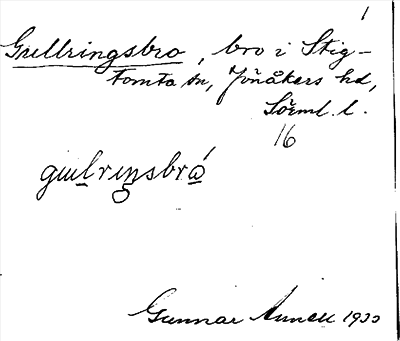 1
Gullringsbro, bro i Stig-
tomta sn, Jönåkers hd,
Sörml. l.
16
gɯlrɪŋsbrá
Gunnar 1933